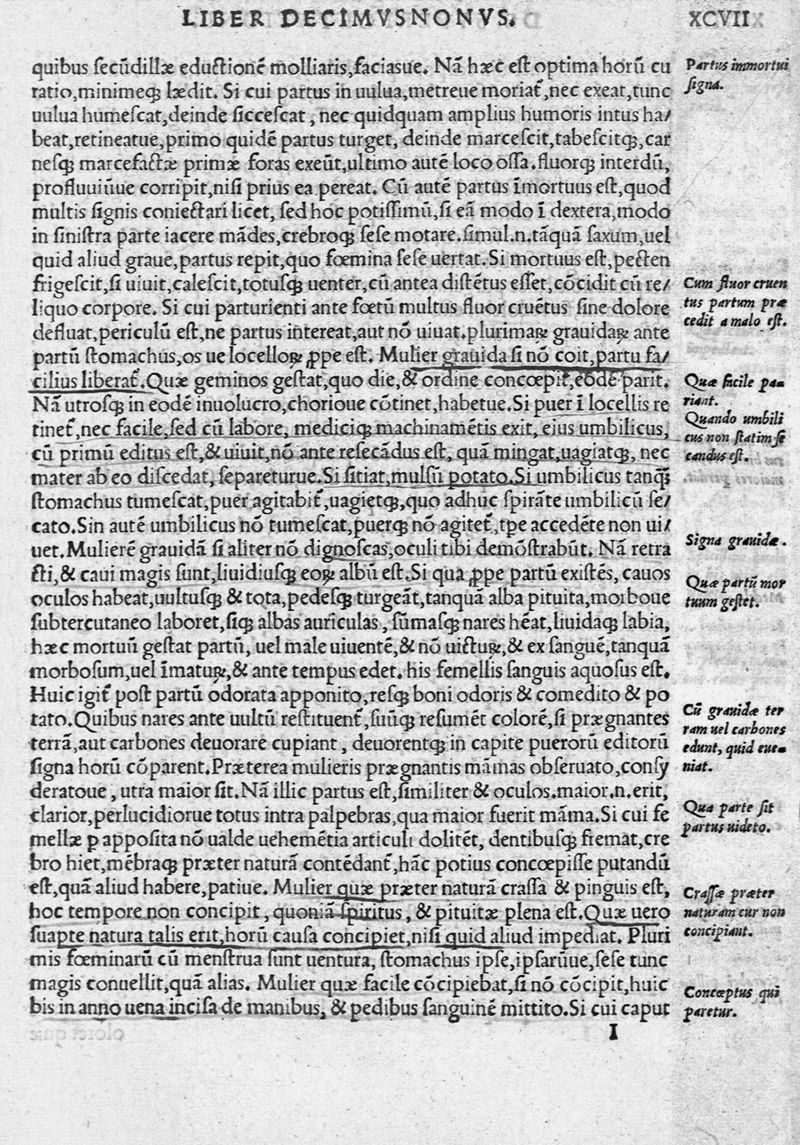 LIBER DECIMVSNONVS. XCVII
quibus secũdillæ eductionẽ molliaris,faciasue. Nã hæc est optima horũ cu
ratio,minimeq; lædit. Si cui partus in uulua,metreue moriat᷑,nec exeat,tunc
uulua humescat,deinde siccescat, nec quidquam amplius humoris intus ha/
beat,retineatue,primo quidẽ partus turget, deinde marcescit,tabescitq;,car
nesq; marcefactæ primæ foras exeũt,ultimo autẽ loco ossa. fluorq; interdũ,
profluuiũue corripit,nisi prius ea pereat. Cũ autẽ partus ĩmortuus est,quod
multis signis coniectari licet, sed hoc potissimũ,si eã modo ĩ dextera,modo
in sinistra parte iacere mãdes,crebroq; sese motare.simul.n.tãquã saxum,uel
quid aliud graue,partus repit,quo fœmina sese uertat. Si mortuus est,pecten
frigescit,si uiuit,calescit,totusq; uenter,cũ antea distẽtus esset,cõcidit cũ re/
liquo corpore. Si cui parturienti ante fœtũ multus fluor cruẽtus sine dolore
defluat,periculũ est,ne partus intereat,aut nõ uiuat.plurimaꝝ grauidaꝝ ante
partũ stomachus,os ue locelloꝝ ꝓpe est. Mulier grauida si nõ coit,partu fa/
cilius liberat᷑. Quæ geminos gestat,quo die,& ordine concœpit,eodẽ parit.
Nã utrosq; in eodẽ inuolucro,chorioue cõtinet,habetue.Si puer ĩ locellis re
tinet᷑,nec facile,sed cũ labore, mediciq; machinamẽtis exit, eius umbilicus,
cũ primũ editus est,& uiuit,nõ ante resecãdus est, quã mingat,uagiatq;, nec
mater ab eo discedat, separeturue.Si sitiat,mulsũ potato.Si umbilicus tanq̃
stomachus tumescat,puer agitabit᷑,uagietq;,quo adhuc spirãte umbilicũ se/
cato.Sin autẽ umbilicus nõ tumescat,puerq; nõ agitet᷑,tpe accedẽte non ui/
uet.Mulierẽ grauidã si aliter nõ dignoscas,oculi tibi demõstrabũt. Nã retra
cti,& caui magis sunt,liuidiusq; eoꝝ albũ est.Si qua ꝓpe partũ existẽs, cauos
oculos habeat,uultusq; & tota,pedesq; turgeãt,tanquã alba pituita,morboue
subtercutaneo laboret,siq; albas auriculas, sũmasq; nares hẽat,liuidaq; labia,
hæc mortuũ gestat partũ, uel male uiuentẽ,& nõ uictuꝝ,& ex sanguẽ,tanquã
morbosum,uel ĩmatuꝝ,& ante tempus edet. his femellis sanguis aquosus est.
Huic igit᷑ post partũ odorata apponito,resq; boni odoris & comedito & po
tato.Quibus nares ante uultũ restituent᷑,suũq; resumẽt colorẽ,si prægnantes
terrã,aut carbones deuorare cupiant, deuorentq; in capite puerorũ editorũ
signa horũ cõparent.Præterea mulieris prægnantis mãmas obseruato,consy
deratoue, utra maior sit. Nã illic partus est,similiter & oculos.maior.n.erit,
clarior,perlucidiorue totus intra palpebras,qua maior fuerit mãma.Si cui fe
mellæ p apposita nõ ualde uehemẽtia articuli dolitẽt, dentibusq; fremat,cre
bro hiet,mẽbraq; præter naturã contẽdant᷑,hãc potius concœpisse putandũ
est,quã aliud habere,patiue. Mulier quæ præter naturã crassa & pinguis est,
hoc tempore non concipit, quoniã spiritus, & pituitæ plena est.Quæ uero
suapte natura talis erit,horũ causa concipiet,nisi quid aliud impediat. Pluri
mis fœminarũ cũ menstrua sunt uentura, stomachus ipse,ipsarũue,sese tunc
magis conuellit,quã alias. Mulier quæ facile cõcipiebat,si nõ cõcipit,huic
bis in anno uena incisa de manibus, & pedibus sanguinẽ mittito.Si cui caput
I
Partus immortui
signa.
Cum fluor cruen
tus partum præ
cedit a malo est.
Quæ facile pa-
riant.
Quando umbili
cus non statim se
candus est.
Signa grauidæ.
Quæ partũ mor
tuum gestet.
Cũ grauidæ ter
ram uel carbones
edunt, quid eue-
niat.
Qua parte sit
partus uideto.
Crassæ præter
naturam cur non
concipiant.
Conceptus qui
paretur.